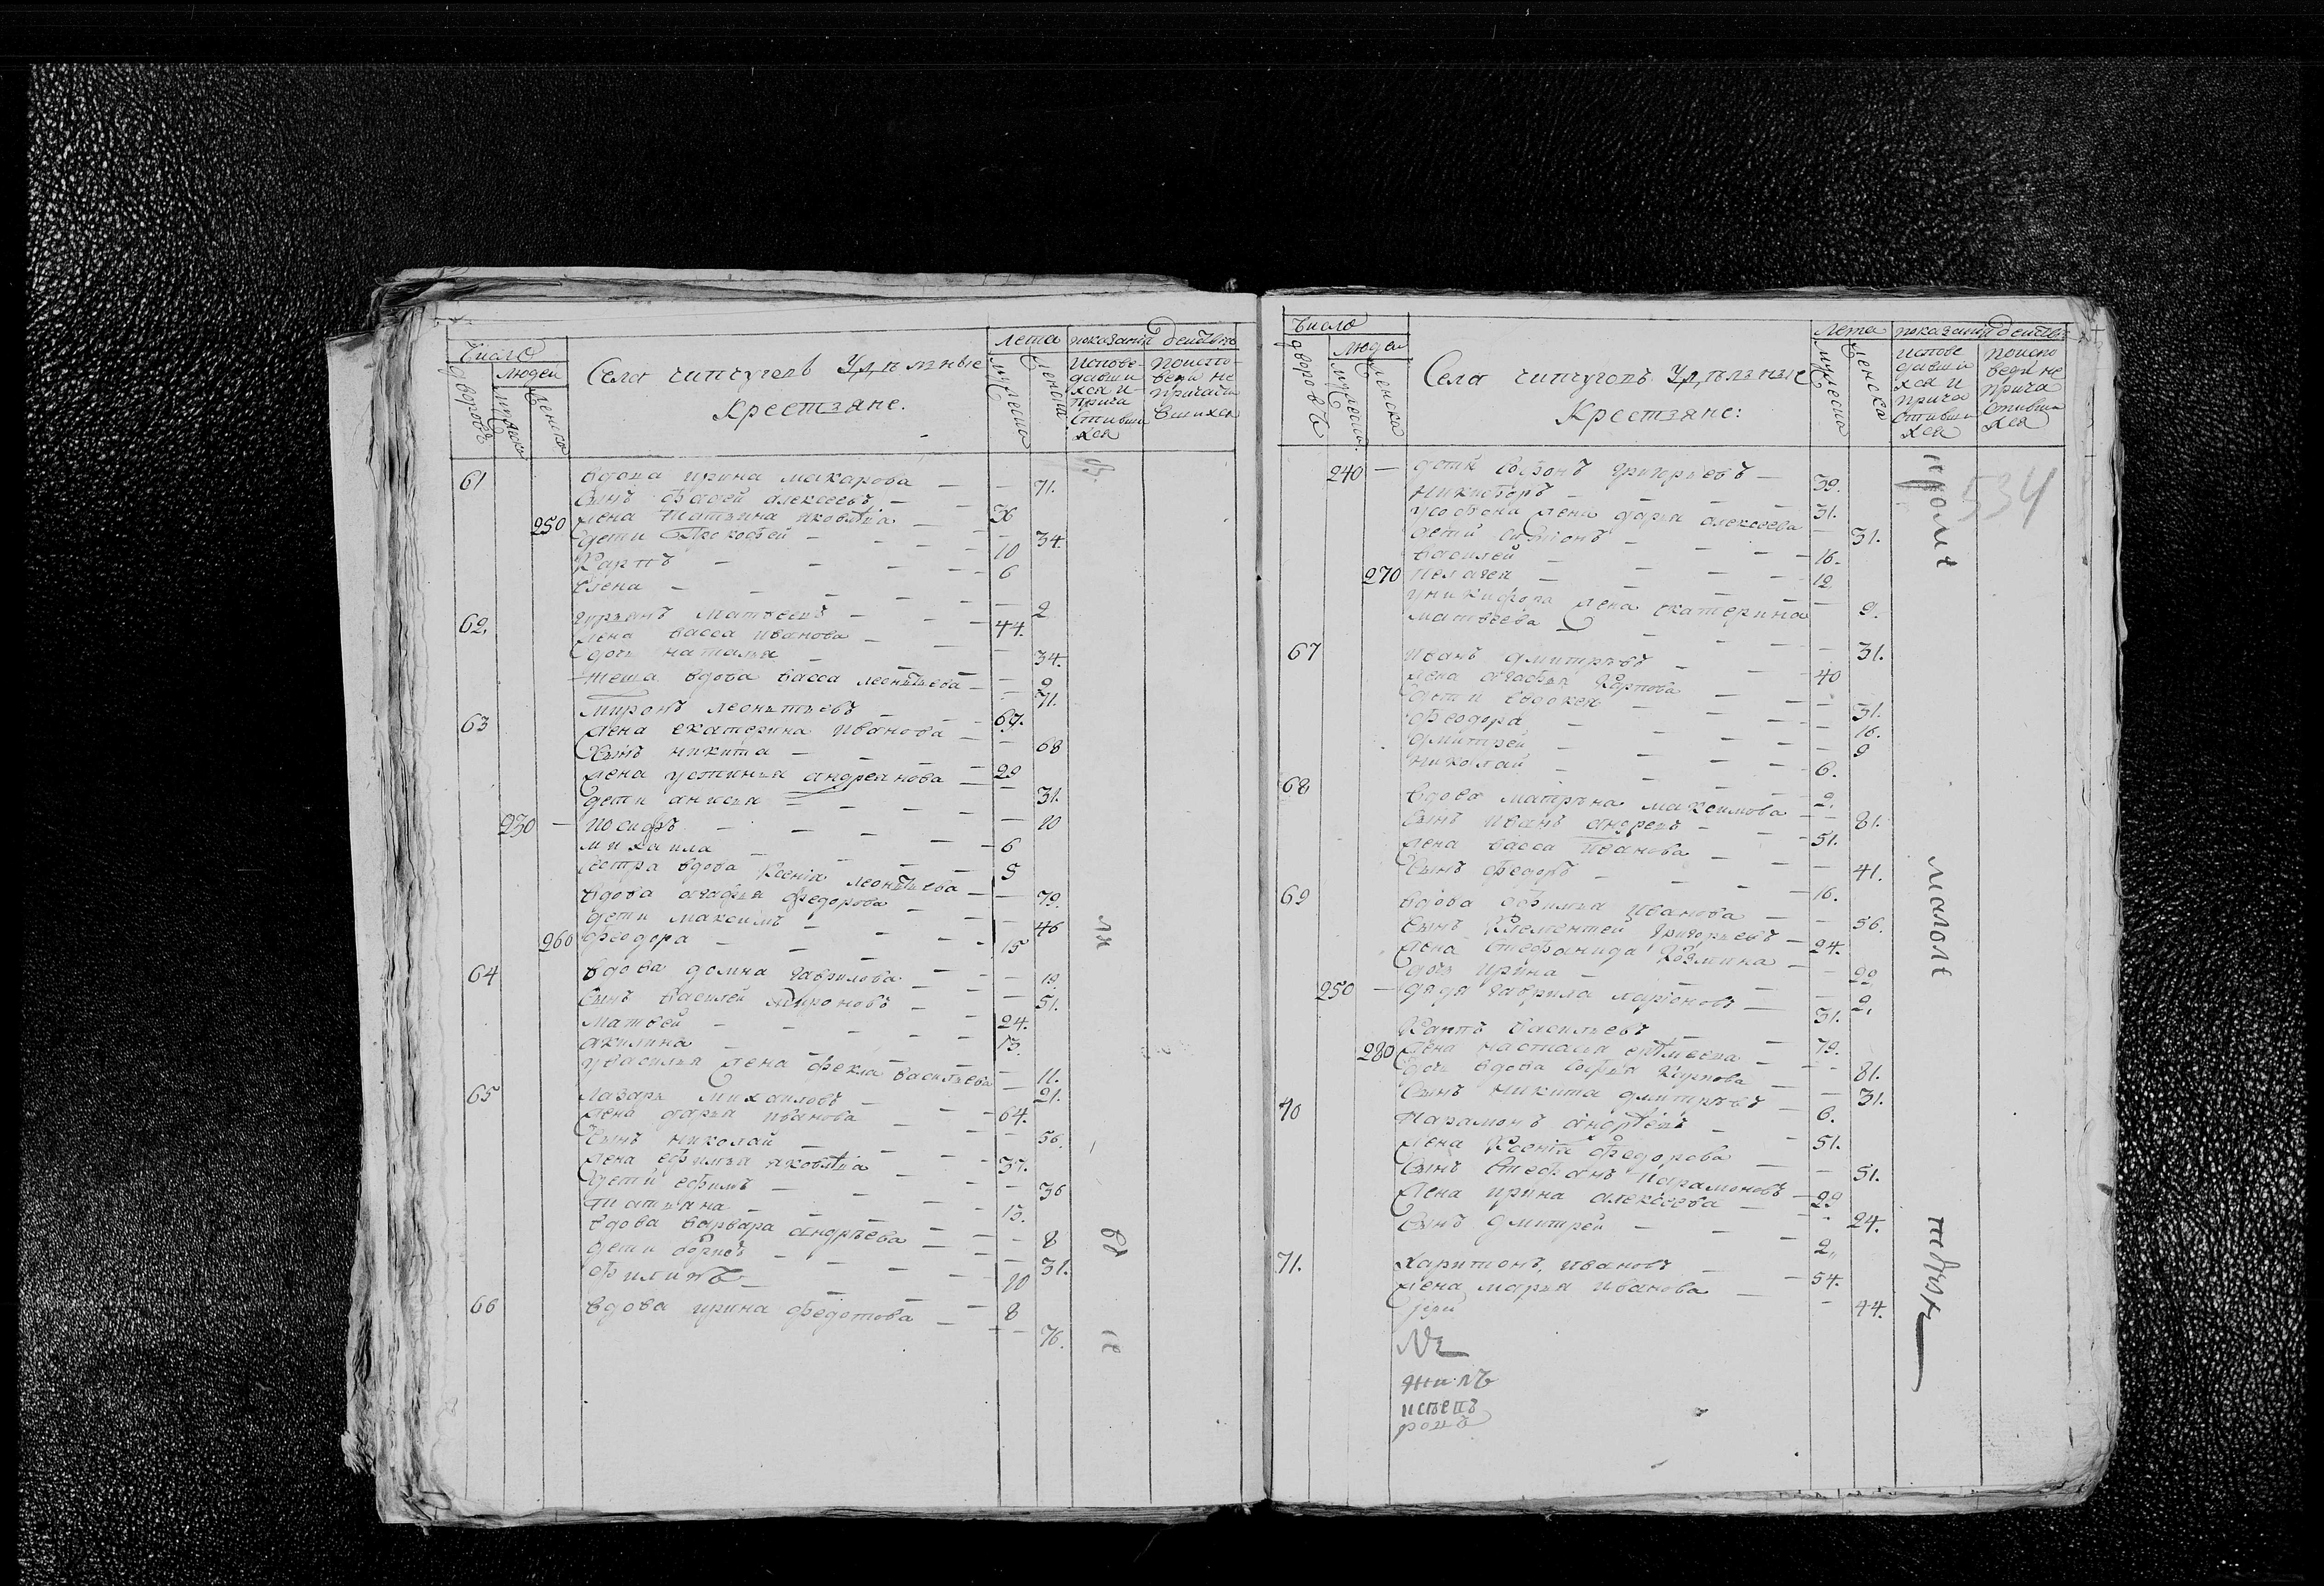 Число
Людей
дворовъ
мужеска
женска
Села чипчугова Удѣльные
Крестьяне.
Лета
мужеска
женска
показаніи действъ
Испове-
давши
хся и
прича
стивши
хся
поиспо-
веди не
причасти
вшихся
61 вдова ирина макарова — — 71.
сынъ фадей алексеевъ — 36
250 жена татьяна яковлева — — 34.
дети Прокофей — 10
Карпъ — 6
Елена — — 2
62. гурьянъ матвеевъ — 44.
жена васса иванова — — 34.
дочь наталья — — 9
теща вдова васса леонтьева — — 71.
63 миронъ леонтьевъ — 67.
жена екатерина иванова — — 68
сынъ никита — 29
жена устинья андреянова — — 31.
дети анисья — — 10
230 — иосифъ — 6
михаила — 5
сестра вдова Ксенія леонтьева — — 79.
вдова агафья федорова — — 46
дети максимъ — 15
260 феодора — — 19.
64 вдова домна гаврилова — — 51.
сынъ василей мироновъ — 24.
матвей — 13.
акилина — — 11.
у василья жена фекла васильева — — 21.
65 лазарь михаиловъ — 64.
жена дарья иванова — — 56.
сынъ николай — 37.
жена ефимья яковлева — — 36
дети ефимъ — 13.
татьяна — — 8
вдова варвара андреева — — 31.
дети — 10
филипъ — 8
66 вдова ирина федотова — — 76.
Число
Людей
дворовъ
мужеска
женска
Села чипчугова Удѣльные
Крестьяне:
Лета
мужеска
женска
показаніи действъ
испове
давши
хся и
прича
стивши
хся
поиспо
веди не
прича
стивши
хся
534
240 — дети Софонъ григорьевъ — 39.
Никифоръ — 31.
у софона жена дарья алексеева — — 31.
дети — 16.
василей — 12
270 пелагея — — 9.
у никифора жена екатерина
матвеева — — 31.
67 иванъ дмитревъ — 40
жена агафья Карпова — — 31.
дети евдокея — — 16.
феодора — — 9
дмитрей — 6.
николай — 2.
68 вдова матрена максимова — — 81.
сынъ иванъ андреевъ — 51.
жена васса иванова — — 41.
сынъ федоръ — 16.
69 вдова ефимья иванова — — 56.
сынъ Клементей григорьевъ — 24.
жена стефанида Козмина — — 22
дочь ирина — — 2.
250 — дядя гаврила ларионовъ — 31.
васильевъ — 79.
280 жена настасья — — 81.
дочь вдова Карпова — — 31.
сынъ никита дмитревъ — 6.
70 парамонъ андреевъ — 51.
жена Ксенія Федорова — — 51.
сынъ стефанъ парамоновъ — 29
жена ирина алексеева — — 24.
сынъ дмитрей — 2.
71. харитонъ ивановъ — 54.
жена марья иванова — — 44.